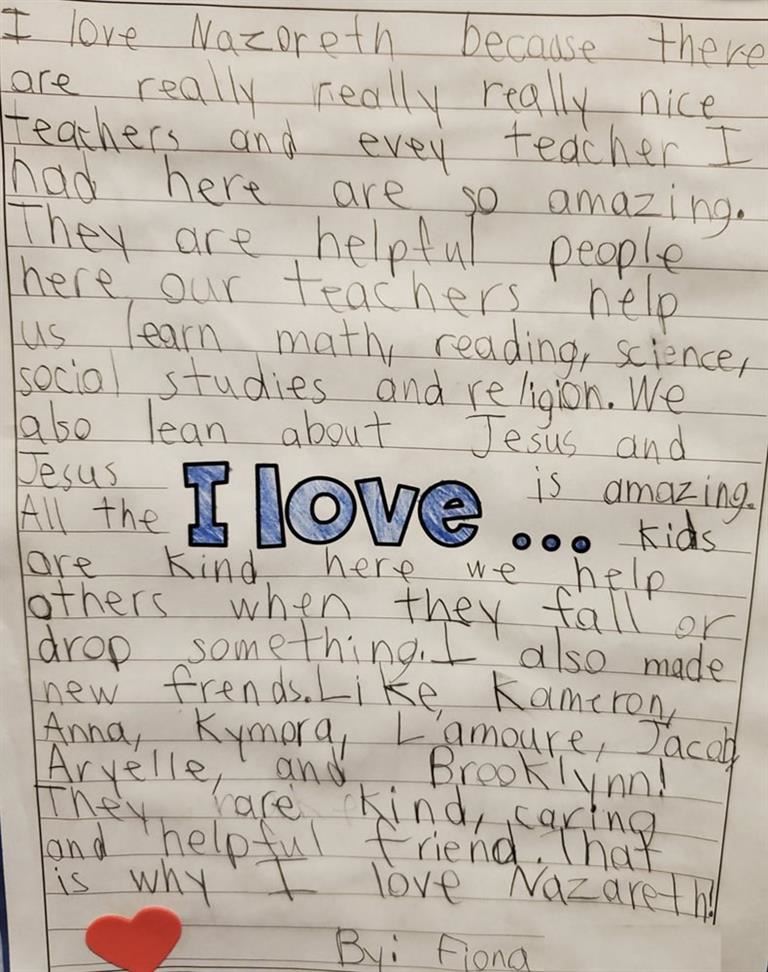 I love Nazoreth because there
are really really really nice
teachers and evey teacher I
had here are so amazing.
They are helpful people
here, our teachers help
us learn math, reading, science,
social studies and religion. We
also lean about Jesus and
Jesus is amazing.
All the I love... kids
are kind here we help
others when they fall or
drop something. I also made
new frends. Like, Kameron,
Anna, Kymora, L'amoure, Jacob,
Aryelle, and Brooklynn!
They are kind, caring
and helpful friend. That
is why I love Nazareth!
By: Fiona